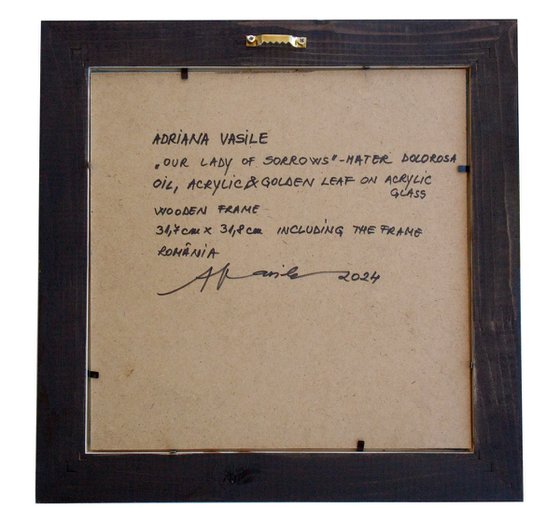 ADRIANA VASILE
„OUR LADY OF SORROWS"-MATER DOLOROSA
OIL, ACRYLIC & GOLDEN LEAF ON ACRYLIC
GLASS
WOODEN FRAME
31,7cm x 31,8cm INCLUDING THE FRAME
ROMÂNIA
AVasile 2024